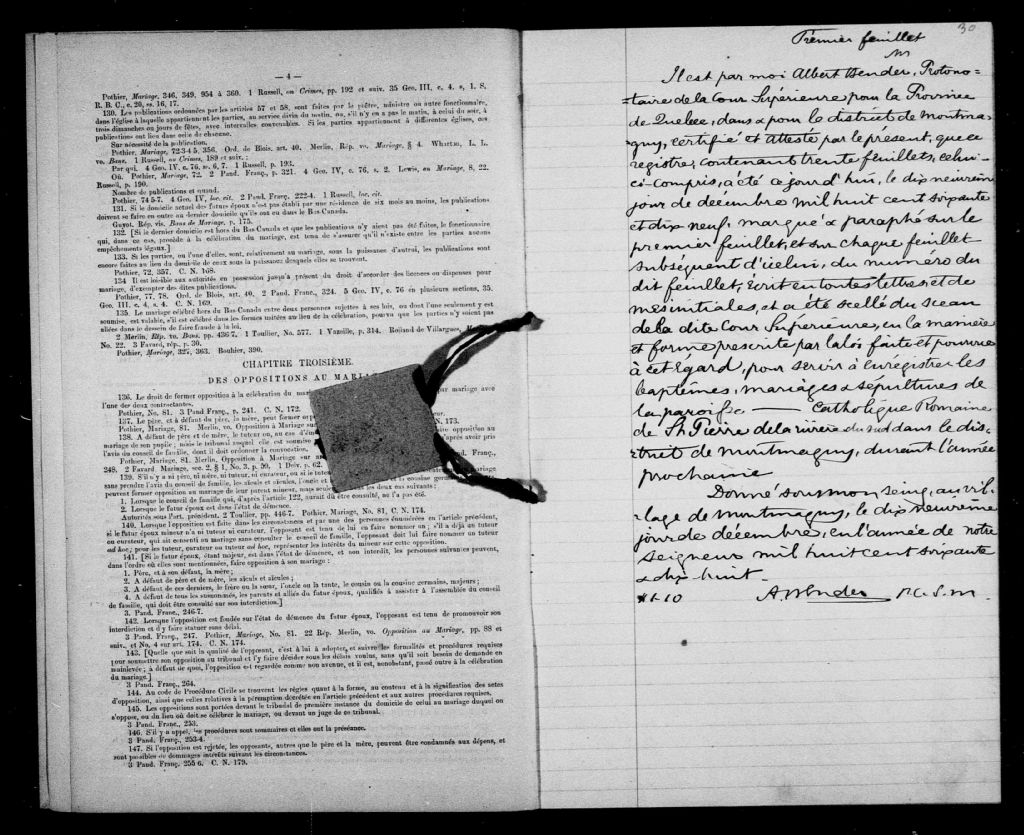 — 4 —
Pothier, Mariage, 346, 349, 954 à 360. 1 Russell, on Crimes, pp. 192 et suiv. 35 Geo. III, c. 4, s, 1. S.
R. B. C., c. 20, ss. 16, 17.
130. Les publications ordonnées par les articles 57 et 58, sont faites par le prêtre, ministre ou autre fonctionnaire,
dans l'église à laquelle appartiennent les parties, au service divin du matin, ou, s'il n'y en a pas le matin, à celui du soir, à
trois dimanches ou jours de fêtes, avec intervalles convenables. Si les parties appartiennent à différentes églises, ces
publications ont lieu dans celle de chacune.
Sur nécessité de la publication.
Pothier, Mariage, 72-3-4 5, 356. Ord. de Blois, art. 40. Merlin, Rép. vo. Mariage, § 4. L. L.
vo. Bans. 1 Russell, on Crimes, 189 et suiv. :
Par qui. 4 Geo. IV, c. 76, ss. 6, 7. 1 Russell, p. 193.
Où. Pothier, Mariage, 72. 2 Pand. Franç., p. 321. 4 Geo. IV, c. 76, s. 2. Lewis, on Mariage, 8, 22.
Russell, p. 190.
Nombre de publications et quand.
Pothier, 74 5-7. 4 Geo. IV, loc. cit. 2 Pand. Franç. 222-4. 1 Russell, loc. cit.
131. Si le domicile actuel des futurs époux n'est pas établi par une résidence de six mois au moins, les publications
doivent se faire en outre au dernier domicile qu'ils ont eu dans le Bas Canada.
Guyot. Rép. vis. Bans de Mariage, p. 175.
132. [Si le dernier domicile est hors du Bas Canada et que les publications n'y aient pas été faites, le fonctionnaire
qui, dans ce cas, procède à la célébration du mariage, est tenu de s'assurer qu'il n'existe entre les parties aucuns
empêchements légaux.]
133. Si les parties, ou l'une d'elles, sont, relativement au mariage, sous la puissance d'autrui, les publications sont
encore faites au lieu du domicile de ceux sous la puissance desquels elles se trouvent.
Pothier, 72, 357. C. N. 168.
134 Il est loisible aux autorités en possession jusqu'à présent du droit d'accorder des licences ou dispenses pour
mariage, d'exempter des dites publications.
Pothier, 77, 78. Ord. de Blois, art. 40. 2 Pand. Franç., 324. 5 Geo. IV, c. 76 en plusieurs sections, 35.
Geo. III, c. 4, s. 4. C. N. 169.
135. Le mariage célébré hors du Bas Canada entre deux personnes sujettes à ses lois, ou dont l'une seulement y est
soumise, est valable, s'il est célébré dans les formes usitées au lieu de la célébration, pourvu que les parties n'y soient pas
allées dans le dessein de faire fraude à la loi.
2 Merlin, Rép. vo. Bans, pp. 436-7. 1 Toullier, No. 577. 1 Vazeille, p. 314. Rolland de Villargues,
No. 22. 3 Favard, rép., p. 30.
Pothier, Mariage, 327, 363. Bouhier, 390.
CHAPITRE TROISIÈME.
DES OPPOSITIONS AU MARIA
136. Le droit de former opposition à la célébration du mar ur mariage avec
l'une des deux contractantes.
Pothier, No. 81. 3 Pand Franç., p. 241. C. N. 172.
137. Le père, et à défaut du père, la mère, peut former oppos
Pothier, Mariage, 81. Merlin, vo. Opposition à Mariage sur N. 173.
138. A défaut de père et de mère, le tuteur ou, au cas d'ém ire opposition au
mariage de son pupille ; mais le tribunal auquel elle est soumise après avoir pris
l'avis du conseil de famille, dont il doit ordonner la convocation.
Pothier, Mariage, 81. Merlin, Opposition à Mariage sur ar nd. Franç.,
248. 2 Favard. Mariage, sec. 2, § 1, No. 3, p. 59, 1 Delv. p. 62.
139. S'il n'y a ni père, ni mère, ni tuteur, ni curateur, ou si le mariage
sans prendre l'avis du conseil de famille, les aïeuls et aïeules, l'oncle cousine germaine
peuvent former opposition au mariage de leur parent mineur, mais seule es deux cas suivants ;
1. Lorsque le conseil de famille qui, d'après l'article 122, aurait dû être consulté, ne l'a pas été.
2. Lorsque le futur époux est dans l'état de démence.
Autorités sous Part. précédent. 2 Toullier, pp. 446-7. Pothier, Mariage, No. 81, C. N. 174.
140. Lorsque l'opposition est faite dans les circonstances et par une des personnes énumérées en l'article précédent,
si le futur époux mineur n'a ni tuteur ni curateur, l'opposant est tenu de lui en faire nommer un ; s'il a déjà un tuteur
ou curateur, qui ait consenti au mariage sans consulter le conseil de famille, l'opposant doit lui faire nommer un tuteur
ad hoc ; pour les tuteur, curateur ou tuteur ad hoc, représenter les intérêts du mineur sur cette opposition.
141. [Si le futur époux, étant majeur, est dans l'état de démence, et non interdit, les personnes suivantes peuvent,
dans l'ordre où elles sont mentionnées, faire opposition à son mariage :
1. Père, et à son défaut, la mère ;
2. A défaut de père et de mère, les aïeuls et aïeules ;
3. A défaut de ces derniers, le frère ou la sœur, l'oncle ou la tante, le cousin ou la cousine germains, majeurs ;
4. A défaut de tous les susnommés, les parents et alliés du futur époux, qualifiés à assister à l'assemblée du conseil
de famille, qui doit être consulté sur son interdiction.]
3. Pand. Franc., 246-7.
142. Lorsque l'opposition est fondée sur l'état de démence du futur époux, l'opposant est tenu de promouvoir son
interdiction et d'y faire statuer sans délai.
3 Pand. Franç., 247. Pothier, Mariage, No. 81. 22 Rép. Merlin, vo. Opposition au Mariage, pp. 88 et
suiv., et No. 4 sur art. 174. C. N. 174.
143. [Quelle que soit la qualité de l'opposant, c'est à lui à adopter, et suivre les formalités et procédures requises
pour soumettre son opposition au tribunal et l'y faire décider sous les délais voulus, sans qu'il soit besoin de demande en
mainlevée ; à défaut de quoi, l'opposition est regardée comme non avenue, et il est, nonobstant, passé outre à la célébration
du mariage.]
3 Pand. Franç., 264.
144. Au code de Procédure Civile se trouvent les règles quant à la forme, au contenu et à la signification des actes
d'opposition, ainsi que celles relatives à la péremption décrétée en l'article précédent et aux autres procédures requises.
145. Les oppositions sont portées devant le tribunal de première instance du domicile de celui au mariage duquel on
s'oppose, ou du lieu où doit se célébrer le mariage, ou devant un juge de ce tribunal.
3 Pand. Franc., 253.
146. S'il y a appel, les procédures sont sommaires et elles ont la préséance.
3 Pand. Franç., 253-4.
147. Si l'opposition est rejetée, les opposants, autres que le père et la mère, peuvent être condamnés aux dépens, et
sont passibles de dommages intérêts suivant les circonstances.
3 Pand. Franç. 255 6. C. N. 179.
30
Premier feuillet
Il est par moi Albert Bender, Protono-
-taire de la Cour Supérieure pour la Province
de Quebec, dans & pour le district de Montma-
gny, certifié et attesté par le présent, que ce
registre, contenant trente feuillets, celui-
ci-compris, a été ce jourd'hui, le dix neuvième
jour de décembre mil huit cent soixante
et dix neuf, marqué & paraphé sur le
premier feuillet, et sur chaque feuillet
subséquent d'icelui, du numéro du
dit feuillet, écrit en toutes lettres, et de
mes initiales, et a été scellé du sceau
de la dite Cour Supérieure, en la manière
et forme prescrite par la loi faite et pourvue
à cet égard, pour servir à l'enregistrer les
baptêmes, mariages & sépultures de
la paroisse — Catholique Romaine
de St. Pierre de la rivière du sud dans le dis-
trict de Montmagny, durant l'année
prochaine
Donné sous mon seing, au vil-
-lage de Montmagny, le dix neuvième
jour de décembre, en l'année de notre
Seigneur mil huit cent soixante
& dix huit.
A. Bender P. C. S. M.